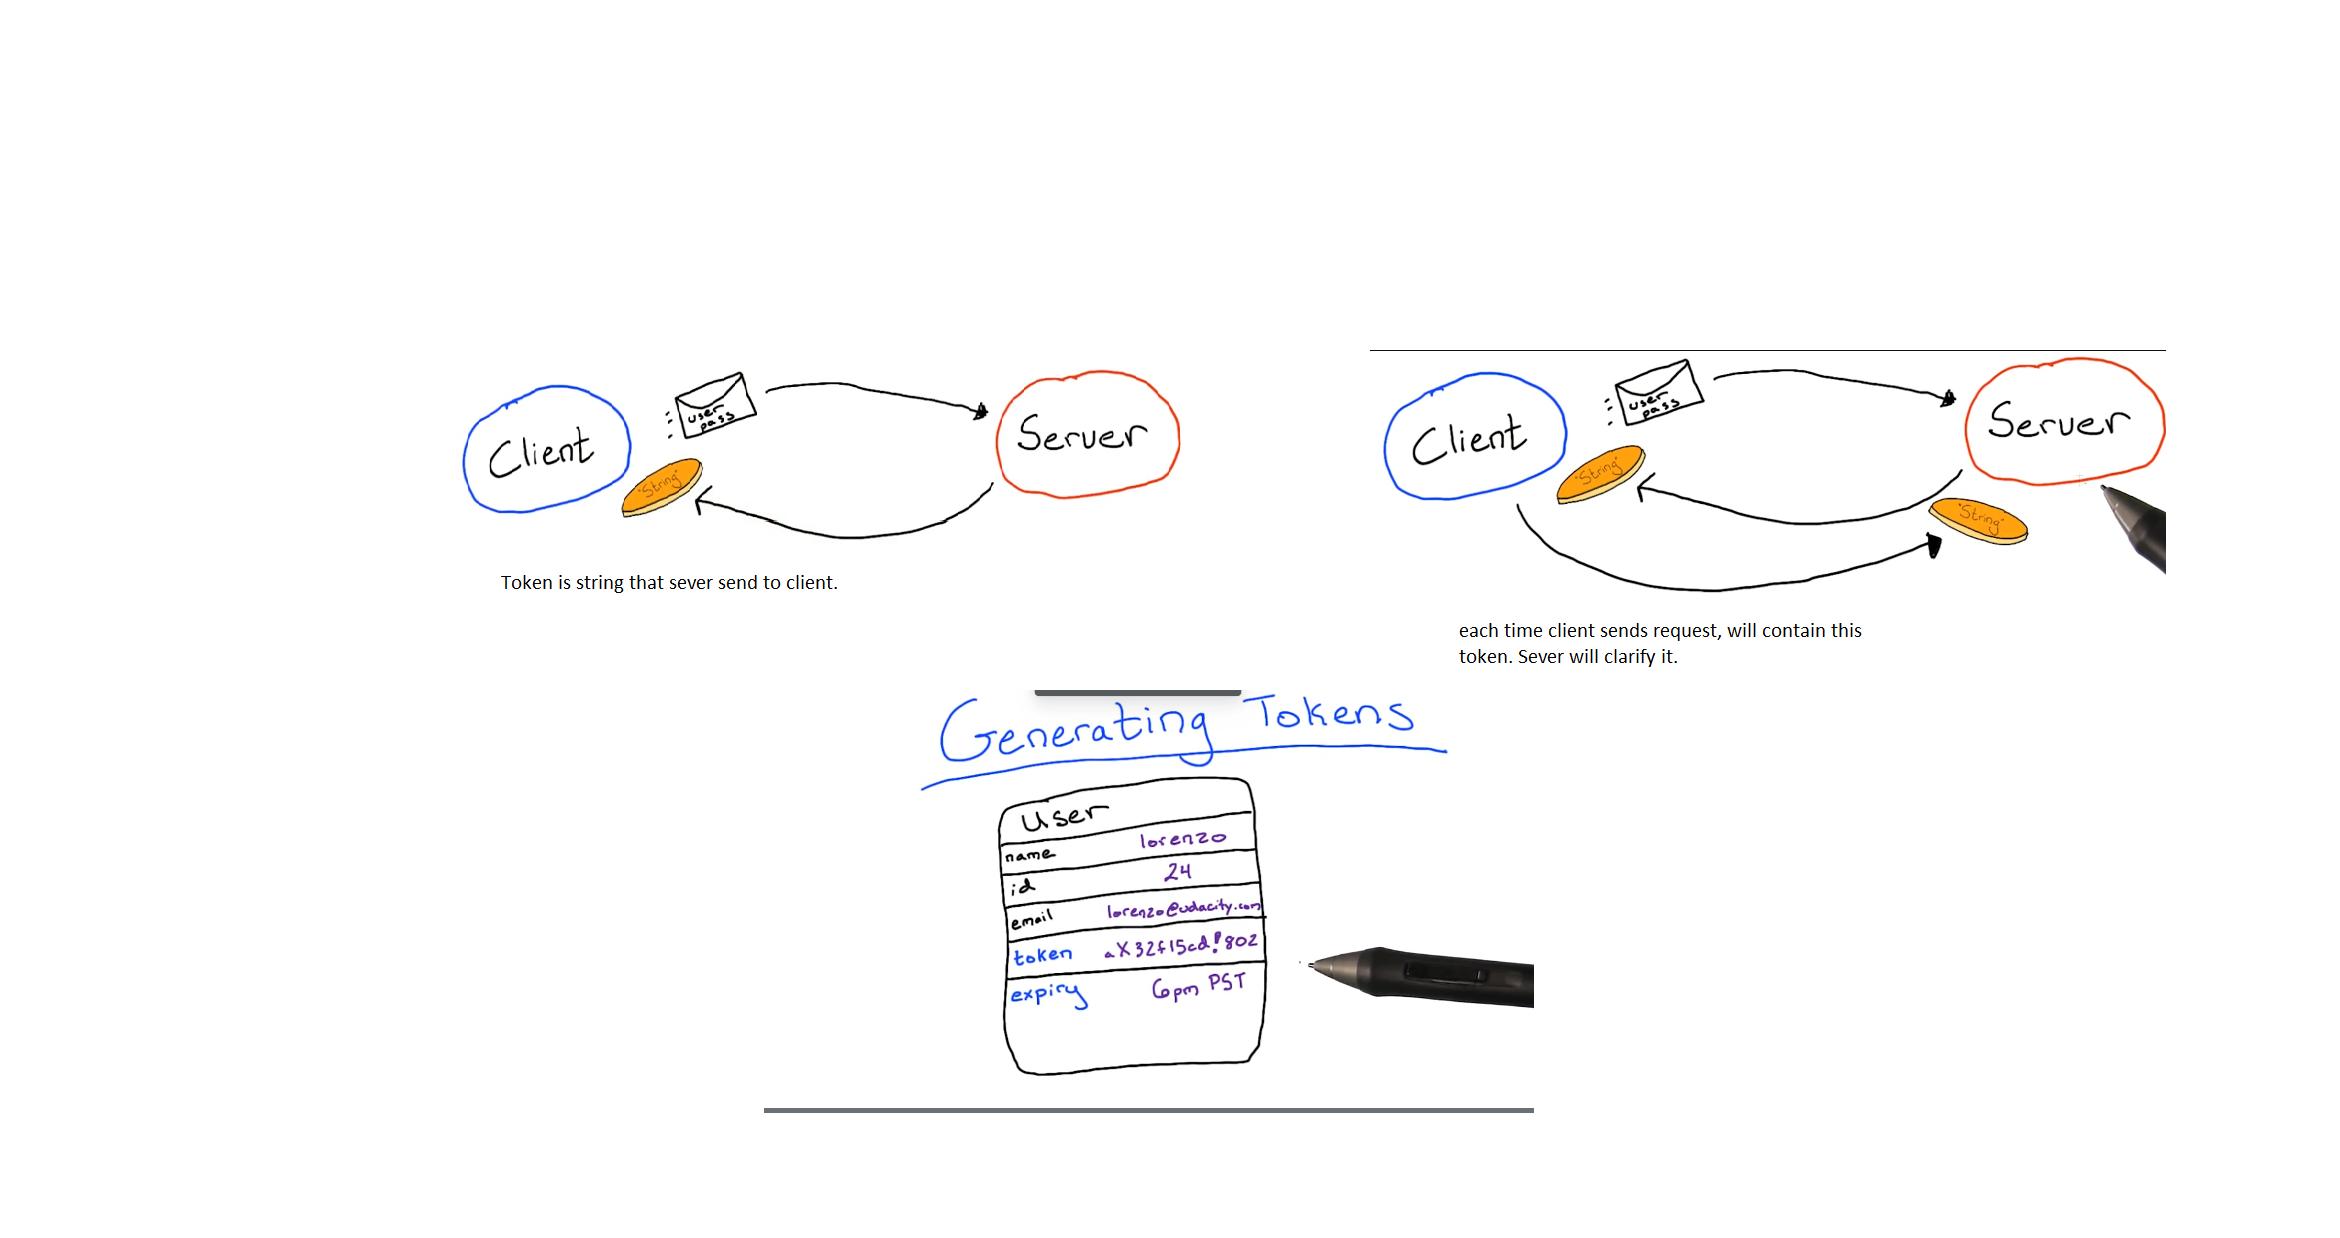 Client
user
pass
"String"
Server
Token is string that sever send to client.
Client
user
pass
"String"
Server
"String"
each time client sends request, will contain this
token. Sever will clarify it.
Generating Tokens
user
name lorenzo
id 24
email lorenzo@udacity.com
token aX32f15cd!802
expiry 6pm PST